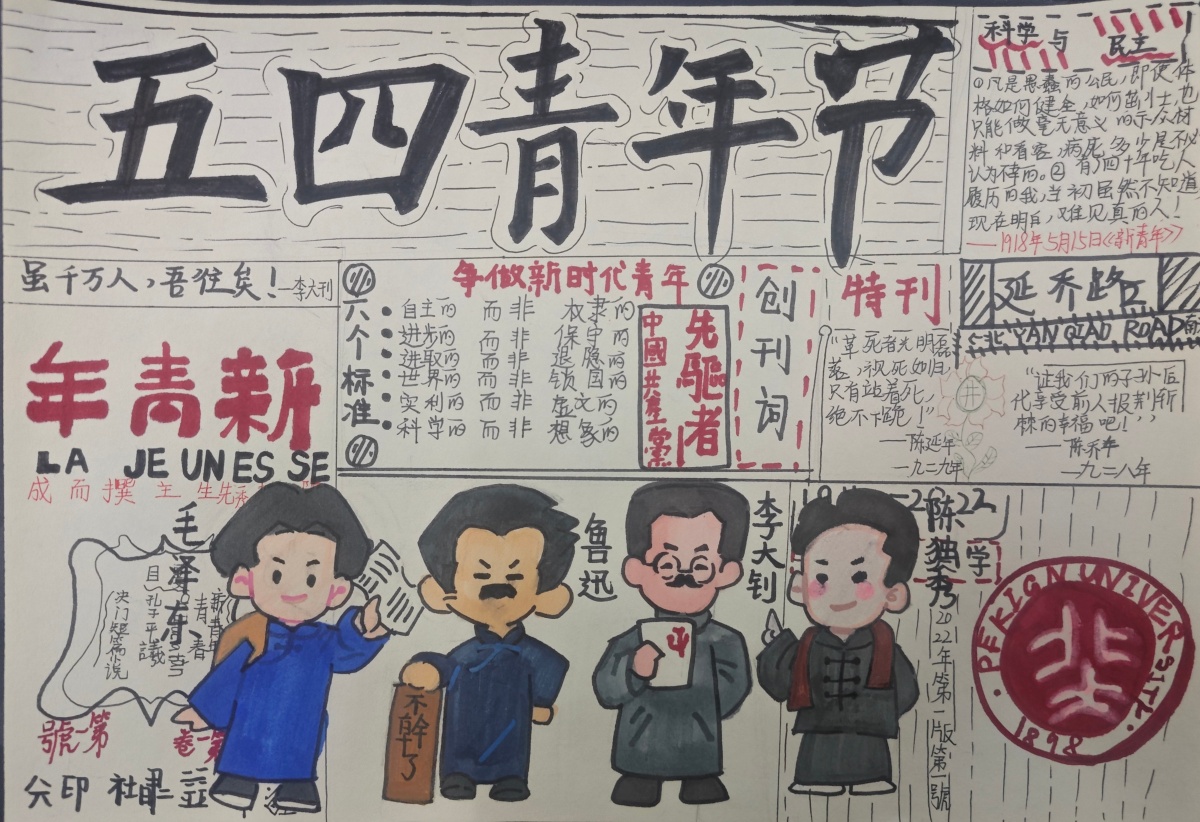 五四青年节
科学与民主
①凡是愚蠢的公民,即使体
格如何健全,如何茁壮,也
只能做毫无意义的示众材
料和看客,病死多少是不必
认为不幸的。②有了四千年吃人
履历的我,当初虽然不知道
现在明白,难见真的人!
——1918年5月15日《新青年》
虽千万人,吾往矣!——李大钊
年青新
LA JEUNESSE
成而撰主生先
争做新时代青年
六个标准
自主的 而非 奴隶的
进步的 而非 保守的
进取的 而非 退隐的
世界的 而非 锁国的
实利的 而非 虚文的
科学的 而非 想象的
先驱者
中國共產黨
创刊词
特刊
"革死者光明磊
落,视死如归,
只有站着死,
绝不下跪!"
——陈延年
一九二九年
延乔路
YANQIAO ROAD
"让我们的子孙后
代享受前人披荆斩
棘的幸福吧!"
——陈乔年
一九二八年
毛泽东
孔子平議
號一第
鲁迅
不幹了
李大钊
陈独秀
2022年第一版第一號
PEKIGN UNIVERSITY
北大
1898